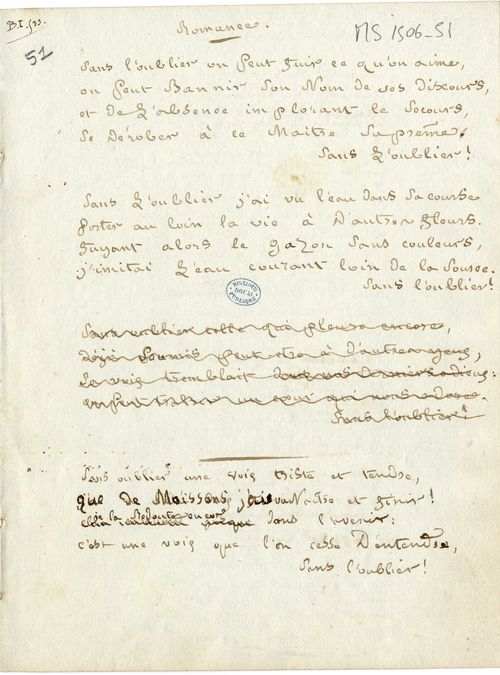 B.I. 533.
MS 1506-51
51
Romance.
Sans l'oublier on peut fuir ce qu'on aime,
on peut Bannir son Nom de ses discours,
et de l'absence implorant le secours,
se dérober à ce Maitre suprême,
Sans l'oublier!
Sans l'oublier j'ai vu l'eau dans sa course
porter au loin la vie à D'autres fleurs.
fuyant alors le gazon sans couleurs,
j'imitai l'eau courant loin de la source.
Sans l'oublier!
BIBLIOTH
DOUAI
PUBLIQUE
Sans oublier celle qui pleure encore,
déjà soumis peut être à d'autres yeux,
Sans l'oublier!
Sans oublier une voix triste et tendre,
que de Moissons j'ai vu Naître et finir!
je la Redoute encor dans l'avenir:
c'est une voix que l'on cesse D'entendre,
sans l'oublier!